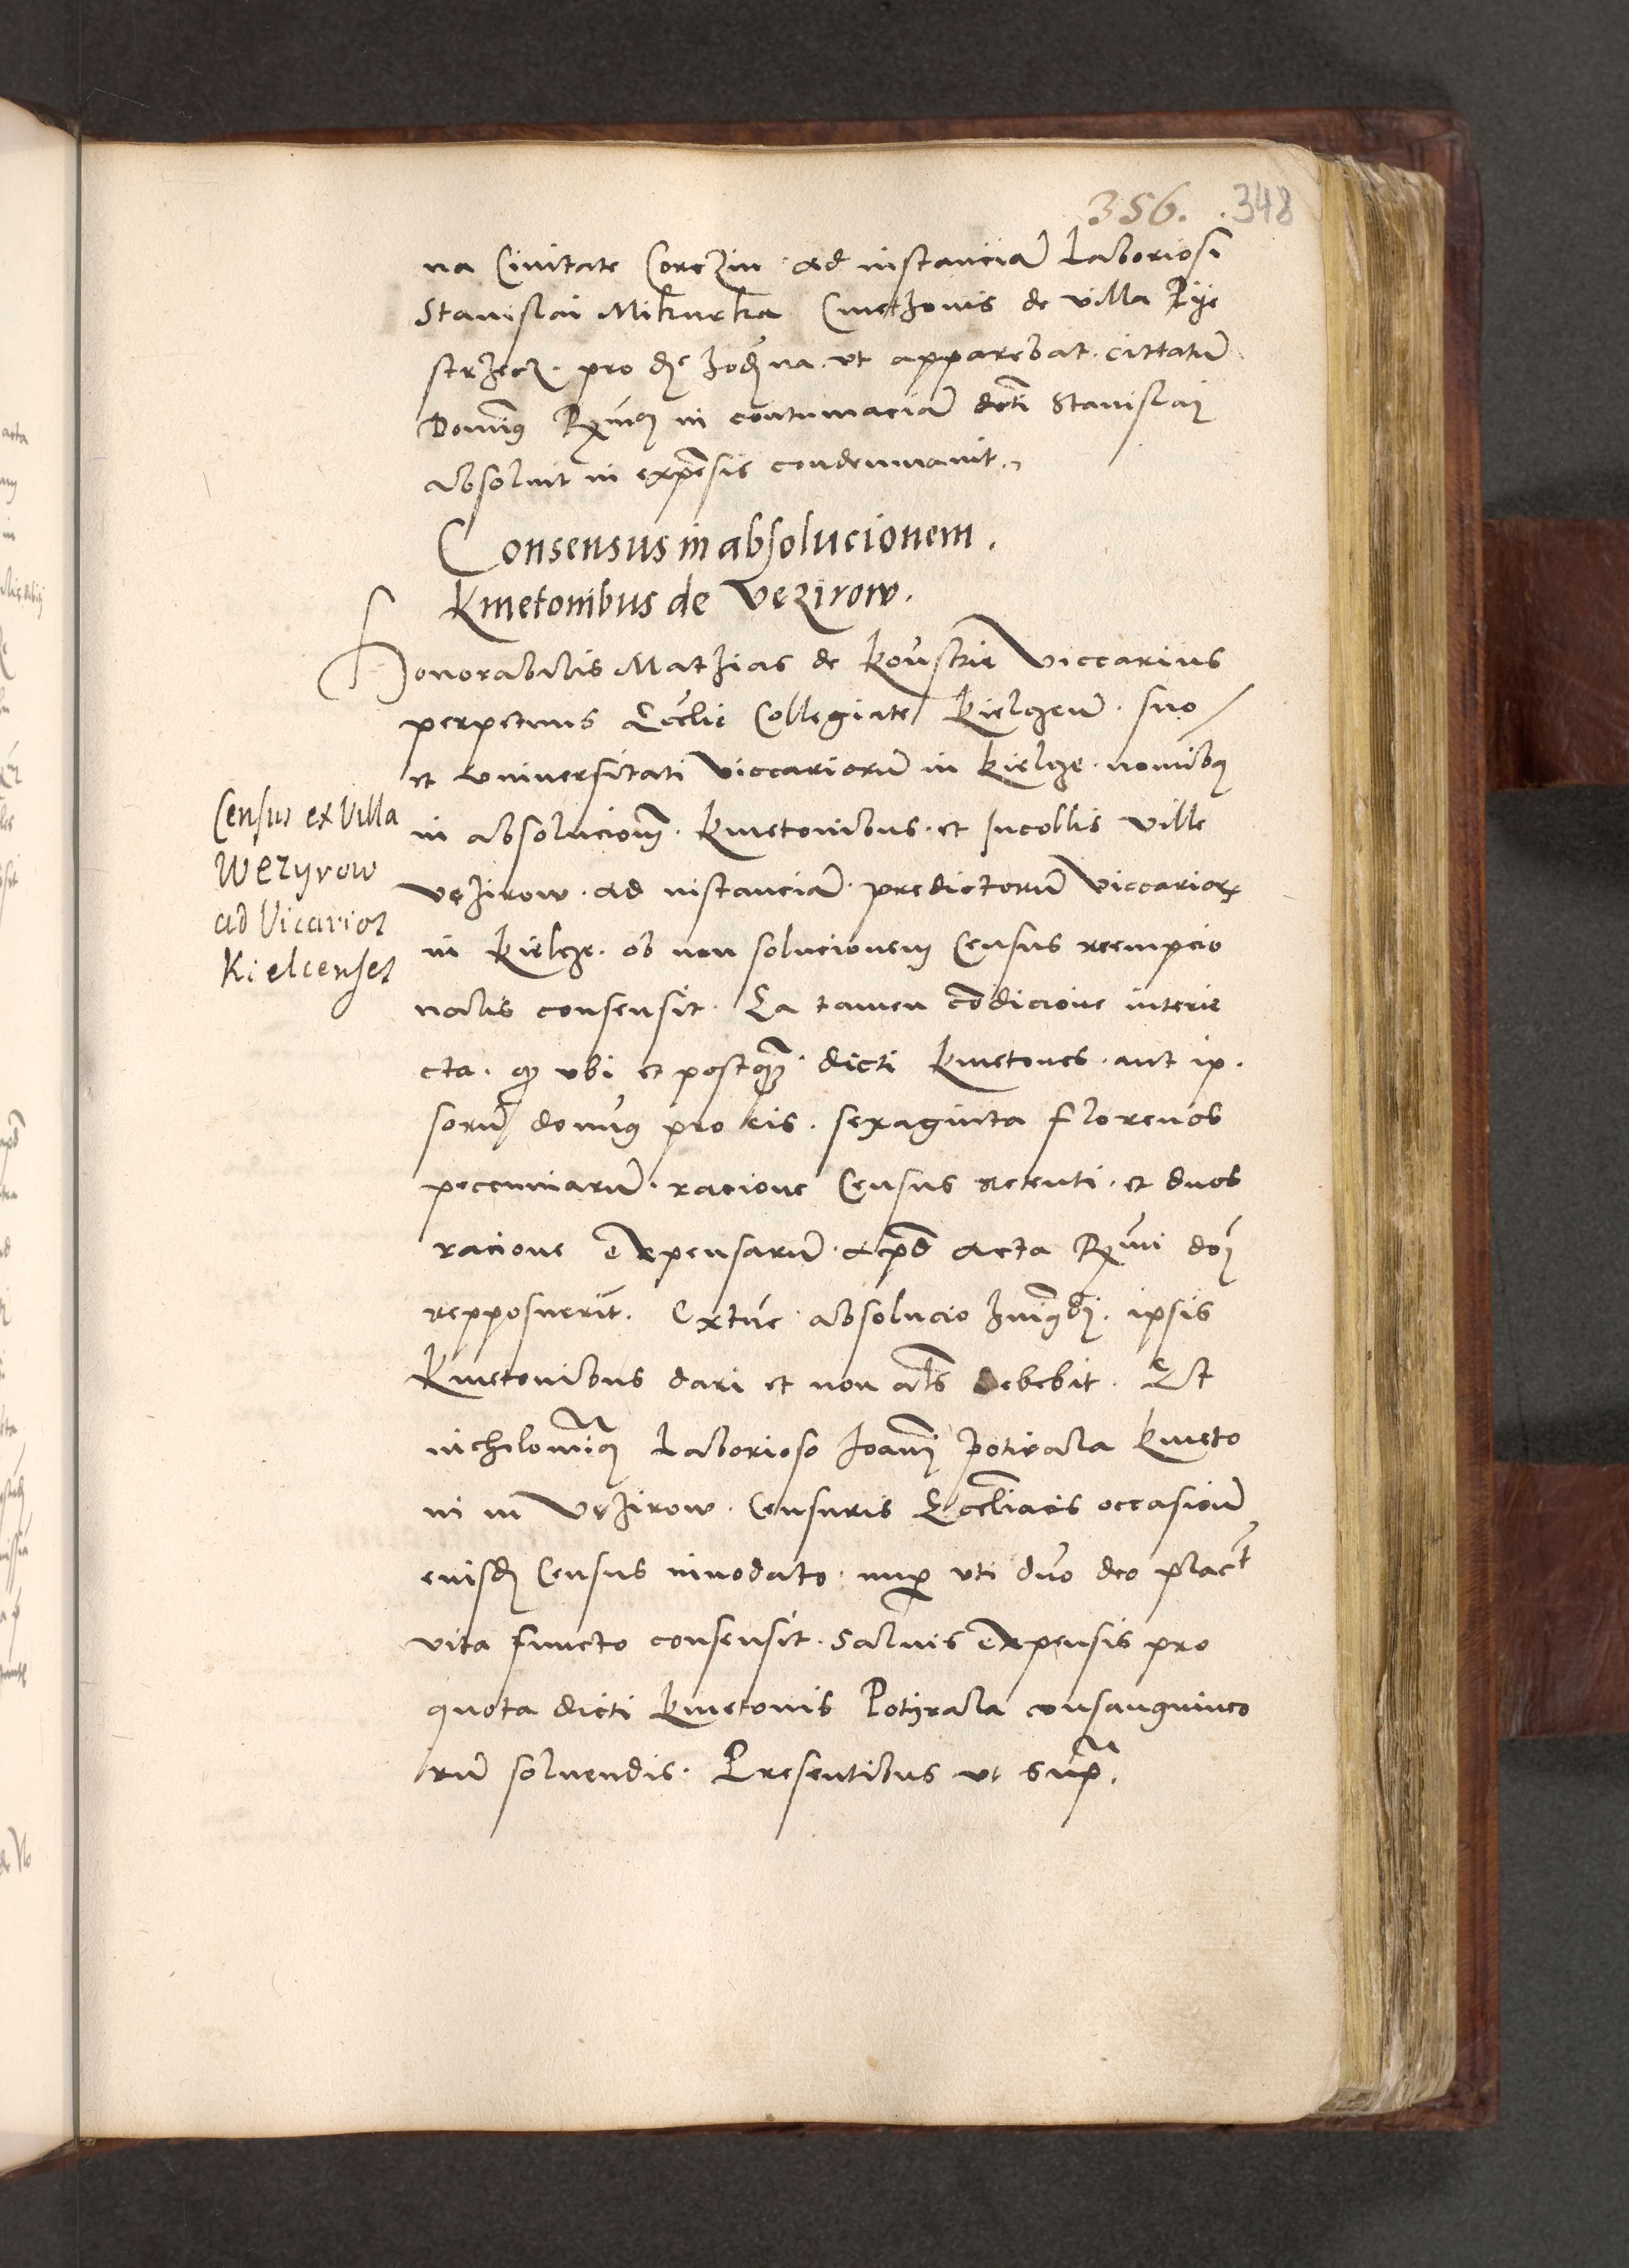 356. 348
na Ciuitate Corczin ad instanciã Laboriosi
Stanislai Mikurka Cmethonis de villa Pije
strzecz. pro die hodierna ut apparebat. cittatũ
Domin9 Rxm9 in contumaciã dcti Stanislai
absoluit in expẽsis condemnauit.
Consensus in absolucionem.
Kmetonibus de Vezirow.
Honorabilis Mathias de Kouschie Viccarius
perpetuus Eccẽlie Collegiate Kielczeñ. suo
et vniuersitati Viccariorũ in Kielcze. nomibq
in absolucionẽ. Kmetonibus. et Incollis ville
Vęzirow. ad instanciã. predictorũ Viccarior
in Kielcze. ob non solucionem Census reempcio
nalis consensit. Ea tamen cõdicione interie
cta. q ubi et postq̃ dicti Kmetones. aut ip.
sorũ domin9 pro eis. sexaginta florenos
peccuniarũ. racione Census retenti. et duos
racione Expensarũ. apd acta Rxmi dni
repposuerit. Extũc absolucio huiusmdi. ipsis
Kmetonibus dari et non als debebit. Et
nichilomin9 Laborioso Joanni Potirala Kmeto
ni in Vęzirow. Censuris Eccliacis occasioñ
euisdẽ Census innodato. nup uti duo deo placet
vita functo consensit. Saluis Expensis pro
quota dicti Kmetonis Potyrala consanguineo
rũ soluendis. Presentibus ut supra.
Census ex Villa
Wezyrow
ad Vicarios
Kielcenses